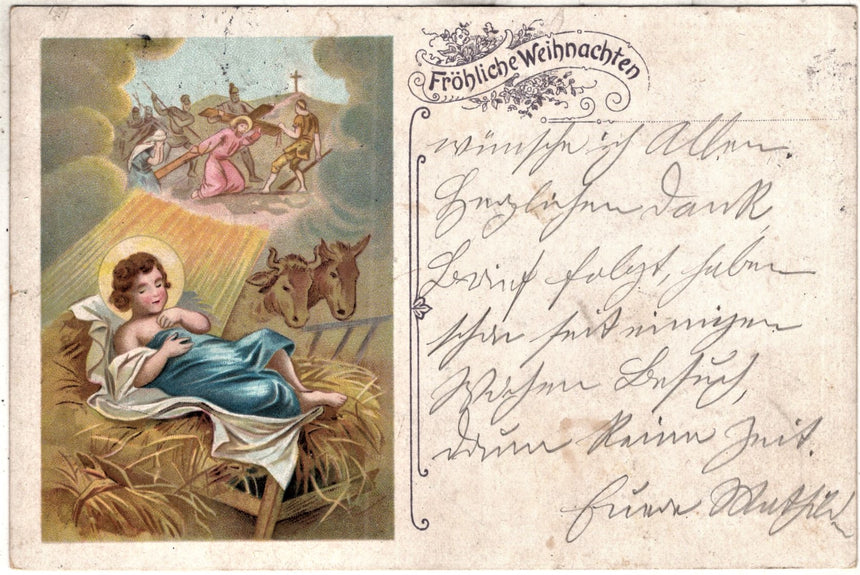 Fröhliche Weihnachten
wünsche ich Allen.
Herzlichen Dank,
Brief folgt, haben
schon seit einigen
Wochen Besuch,
darum keine Zeit.
Euere Mathilde